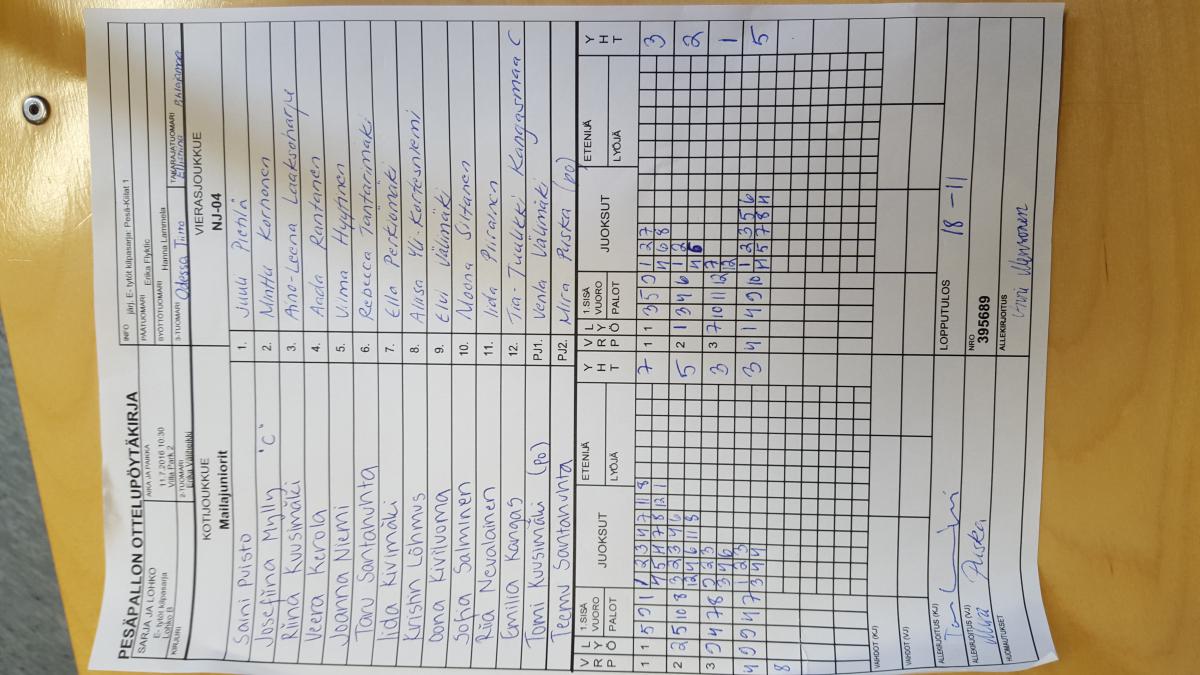 PESÄPALLON OTTELUPÖYTÄKIRJA
SARJA JA LOHKO
E- tytöt kilpasarja
Lohko B
AIKA JA PAIKKA
11.7.2016 10:30
Villa Park 2
INFO järj. E- tytöt kilpasarja: Pesä-Kiilat 1
PÄÄTUOMARI Erika Flyktic
SYÖTTÖTUOMARI Hanna Lammela
KIRJURI
2-TUOMARI
Erika Väliheikki
3-TUOMARI Odessa Timo
TAKARAJATUOMARI
KOTIJOUKKUE
Mailajuniorit
VIERASJOUKKUE
NJ-04
Saini Puisto 1. Juuli Pietilä
Josefiina Mylly "C" 2. Minttu Korhonen
Riina Kuusimäki 3. Aino-Leena Laaksoharju
Veera Kerola 4. Aada Rantanen
Joanna Niemi 5. Vilma Hyytinen
Taru Santahuhta 6. Rebecca Jantarimäki
Iida Kivimäki 7. Ella Perkiömäki
Kristin Lõhmus 8. Alisa Yli-Kartesniemi
Oona Kiviluoma 9. Elvi Välimäki
Sofia Salminen 10. Moona Siltanen
Riia Nevalainen 11. Iida Piirainen
Emilia Kangas 12. Tia-Tuulikki Kangasmaa C
Tomi Kuusimäki (po) PJ1. Venla Välimäki
Teemu Santahuhta PJ2. Mira Puska (po)
V R P L Y Ö 1.SISÄ VUORO PALOT JUOKSUT ETENIJÄ LYÖJÄ Y H T
V R P L Y Ö 1.SISÄ VUORO PALOT JUOKSUT ETENIJÄ LYÖJÄ Y H T
1 1 5 9 1 1 2 3 4 7 11 8 7 1 1 3 5 9 1 2 7 3
4 5 4 7 8 12 1 4 6 8
2 2 5 10 8 3 2 3 4 6 5 2 1 3 4 6 1 2 2
12 4 6 11 8 4 6
3 9 4 7 8 1 2 3 3 3 7 10 11 12 7 1
3 4 6 12
4 9 9 4 7 1 2 3 3 4 1 4 9 10 1 2 3 5 6 5
3 4 4 4 5 7 8 11
8
VAIHDOT (KJ)
VAIHDOT (VJ)
ALLEKIRJOITUS (KJ)
LOPPUTULOS 18 - 11
ALLEKIRJOITUS (VJ) Mira Puska
NRO
395689
HUOMAUTUKSET
ALLEKIRJOITUS